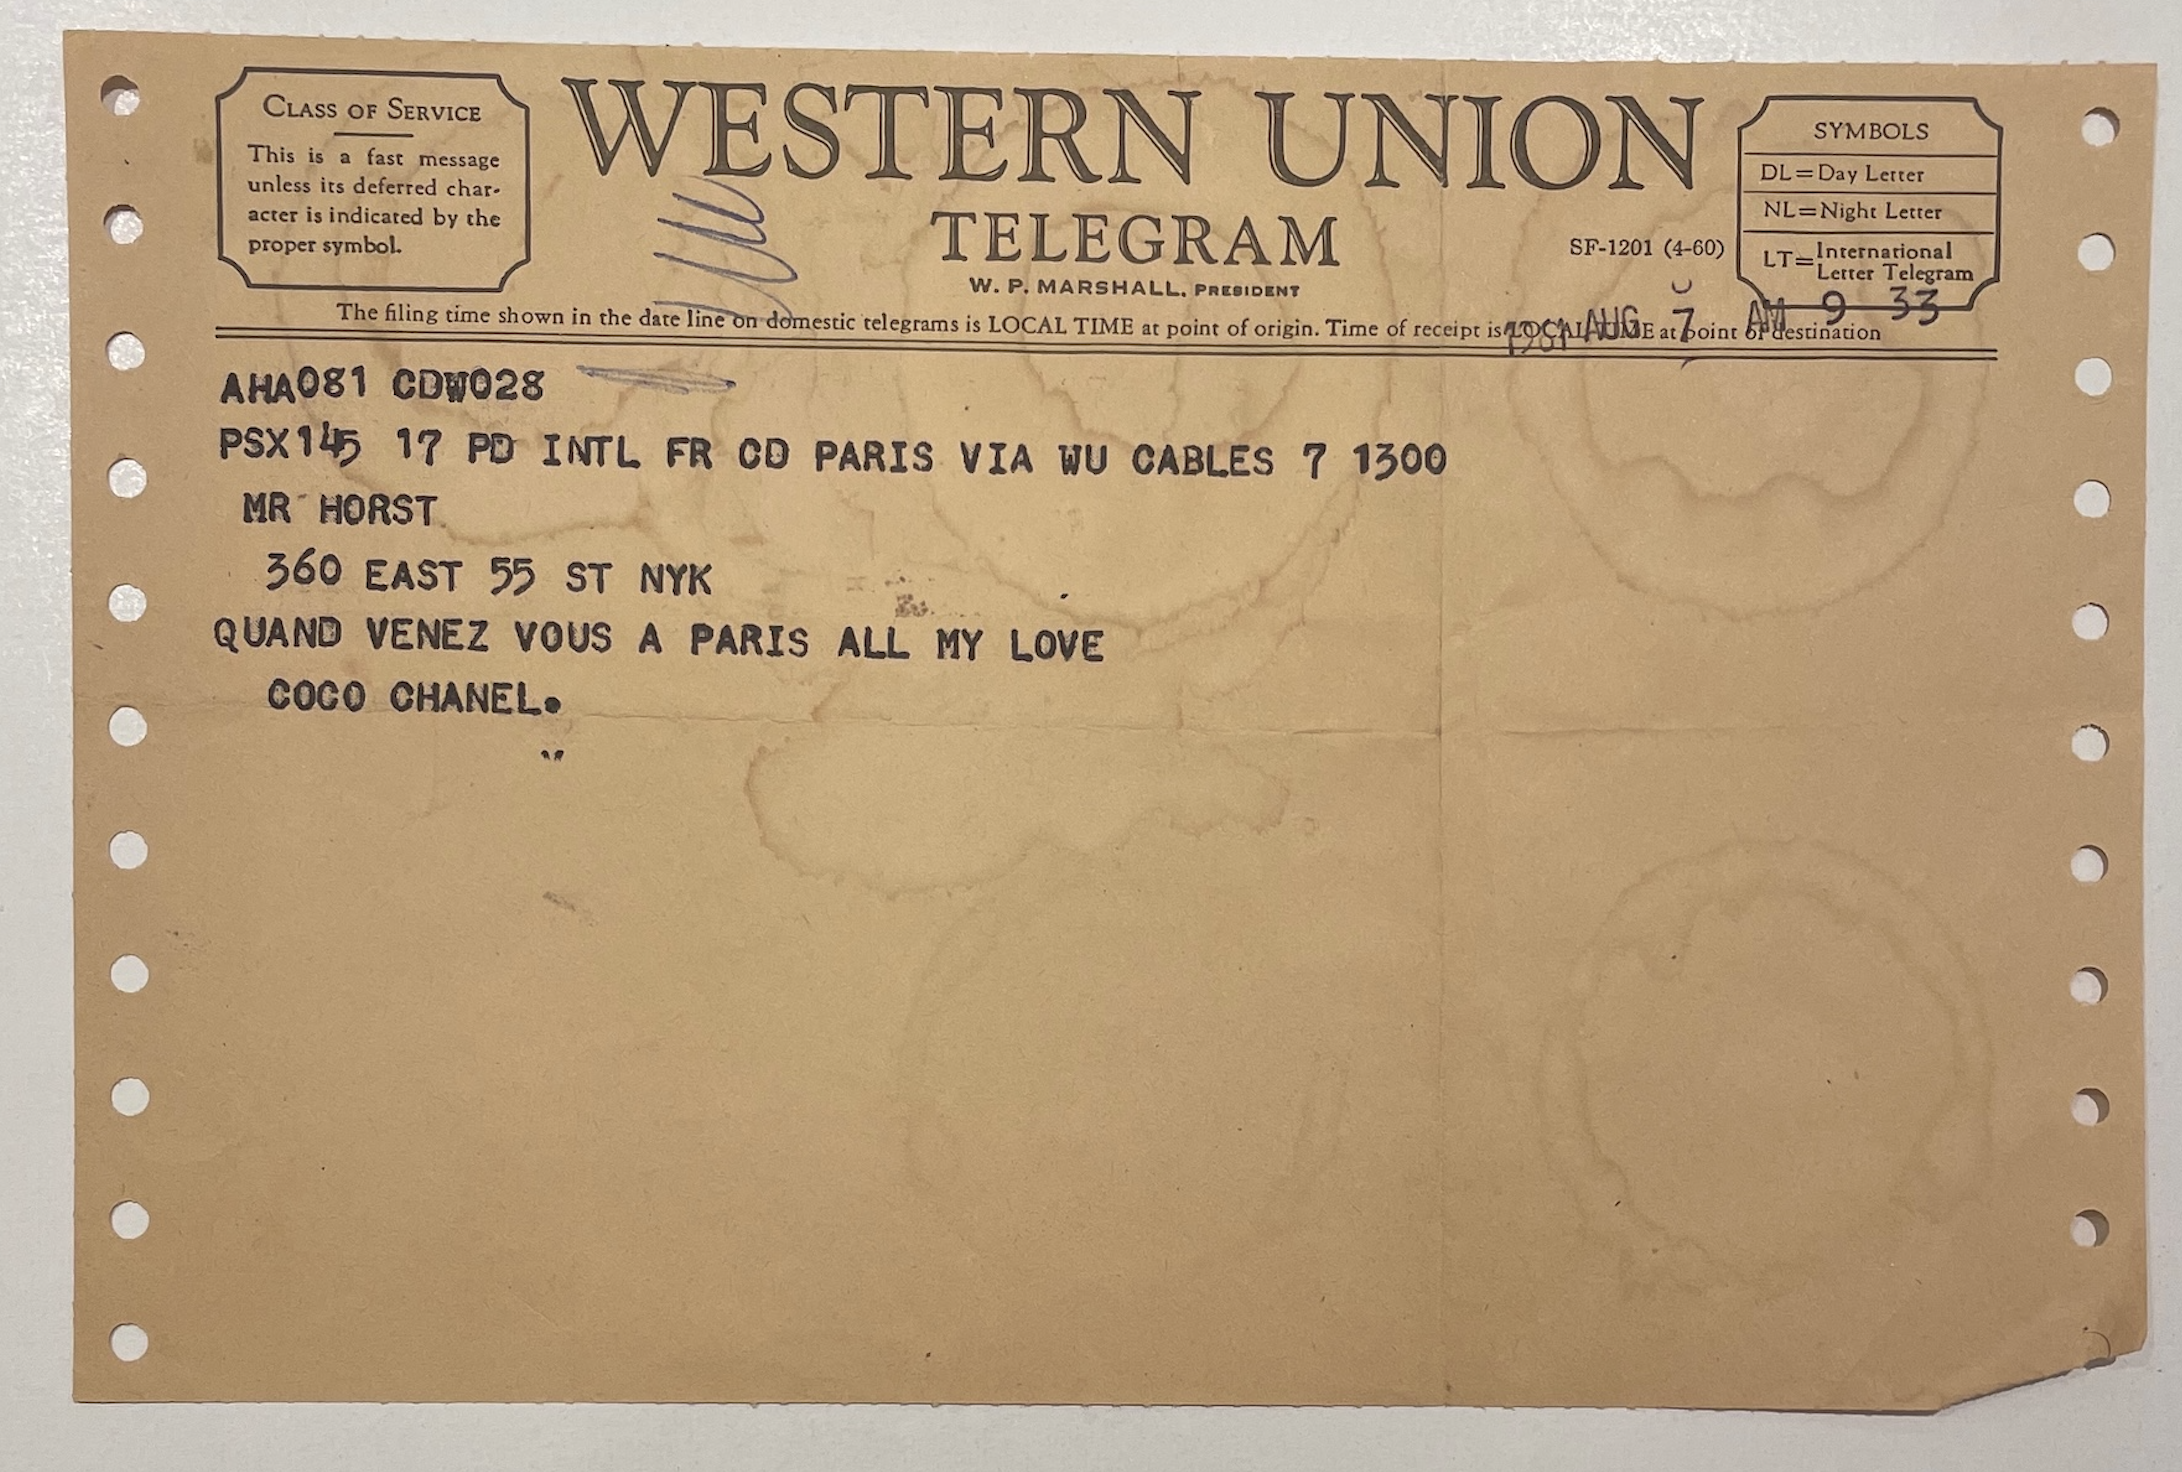 CLASS OF SERVICE
This is a fast message
unless its deferred char-
acter is indicated by the
proper symbol.
WESTERN UNION
TELEGRAM
W. P. MARSHALL, PRESIDENT
SF-1201 (4-60)
SYMBOLS
DL=Day Letter
NL=Night Letter
LT=International
Letter Telegram
The filing time shown in the date line on domestic telegrams is LOCAL TIME at point of origin. Time of receipt is LOCAL TIME at point of destination
1961 AUG 7 AM 9 33
AHA081 CDW028
PSX145 17 PD INTL FR CD PARIS VIA WU CABLES 7 1300
MR HORST
360 EAST 55 ST NYK
QUAND VENEZ VOUS A PARIS ALL MY LOVE
COCO CHANEL.